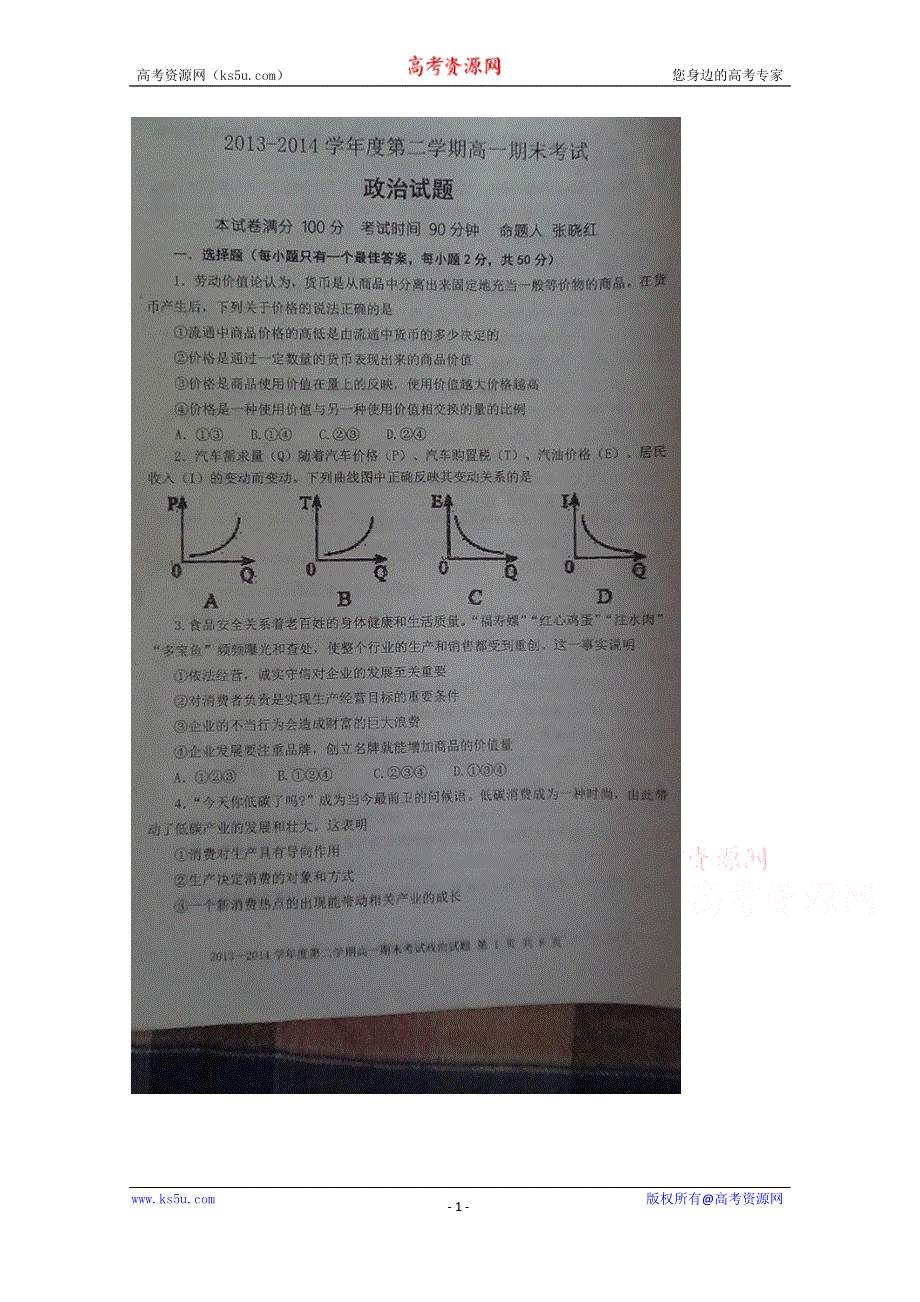 高考资源网（ks5u.com）
高考资源网
您身边的高考专家
2013-2014学年度第二学期高一期末考试
政治试题
本试卷满分 100分 考试时间 90分钟 命题人 张晓红
一．选择题（每小题只有一个最佳答案，每小题2分，共50分）
1．劳动价值论认为，货币是从商品中分离出来固定地充当一般等价物的商品。在货
币产生后，下列关于价格的说法正确的是
①流通中商品价格的高低是由流通中货币的多少决定的
②价格是通过一定数量的货币表现出来的商品价值
③价格是商品使用价值在量上的反映，使用价值越大价格越高
④价格是一种使用价值与另一种使用价值相交换的量的比例
A. ①③ B.①④ C.②③ D.②④
2．汽车需求量（Q）随着汽车价格（P）、汽车购置税（T）、汽油价格（E）、居民
收入（I）的变动而变动。下列曲线图中正确反映其变动关系的是
P T E I
0 Q 0 Q 0 Q 0 Q
A B C D
3.食品安全关系着老百姓的身体健康和生活质量。“福寿螺”“红心鸡蛋”“注水肉”
“多宝鱼”频频曝光和查处，使整个行业的生产和销售都受到重创。这一事实说明
①依法经营，诚实守信对企业的发展至关重要
②对消费者负责是实现生产经营目标的重要条件
③企业的不当行为会造成财富的巨大浪费
④企业发展要注重品牌，创立名牌就能增加商品的价值量
A. ①②③ B.①②④ C.②③④ D.①③④
4．“今天你低碳了吗?”成为当今最前卫的问候语。低碳消费成为一种时尚，由此带
动了低碳产业的发展和壮大。这表明
①消费对生产具有导向作用
②生产决定消费的对象和方式
③一个新消费热点的出现能带动相关产业的成长
资源网
高考资源网
2013—2014学年度第二学期高一期末考试政治试题 第 1 页 共 8 页
www.ks5u.com
- 1 -
版权所有@高考资源网